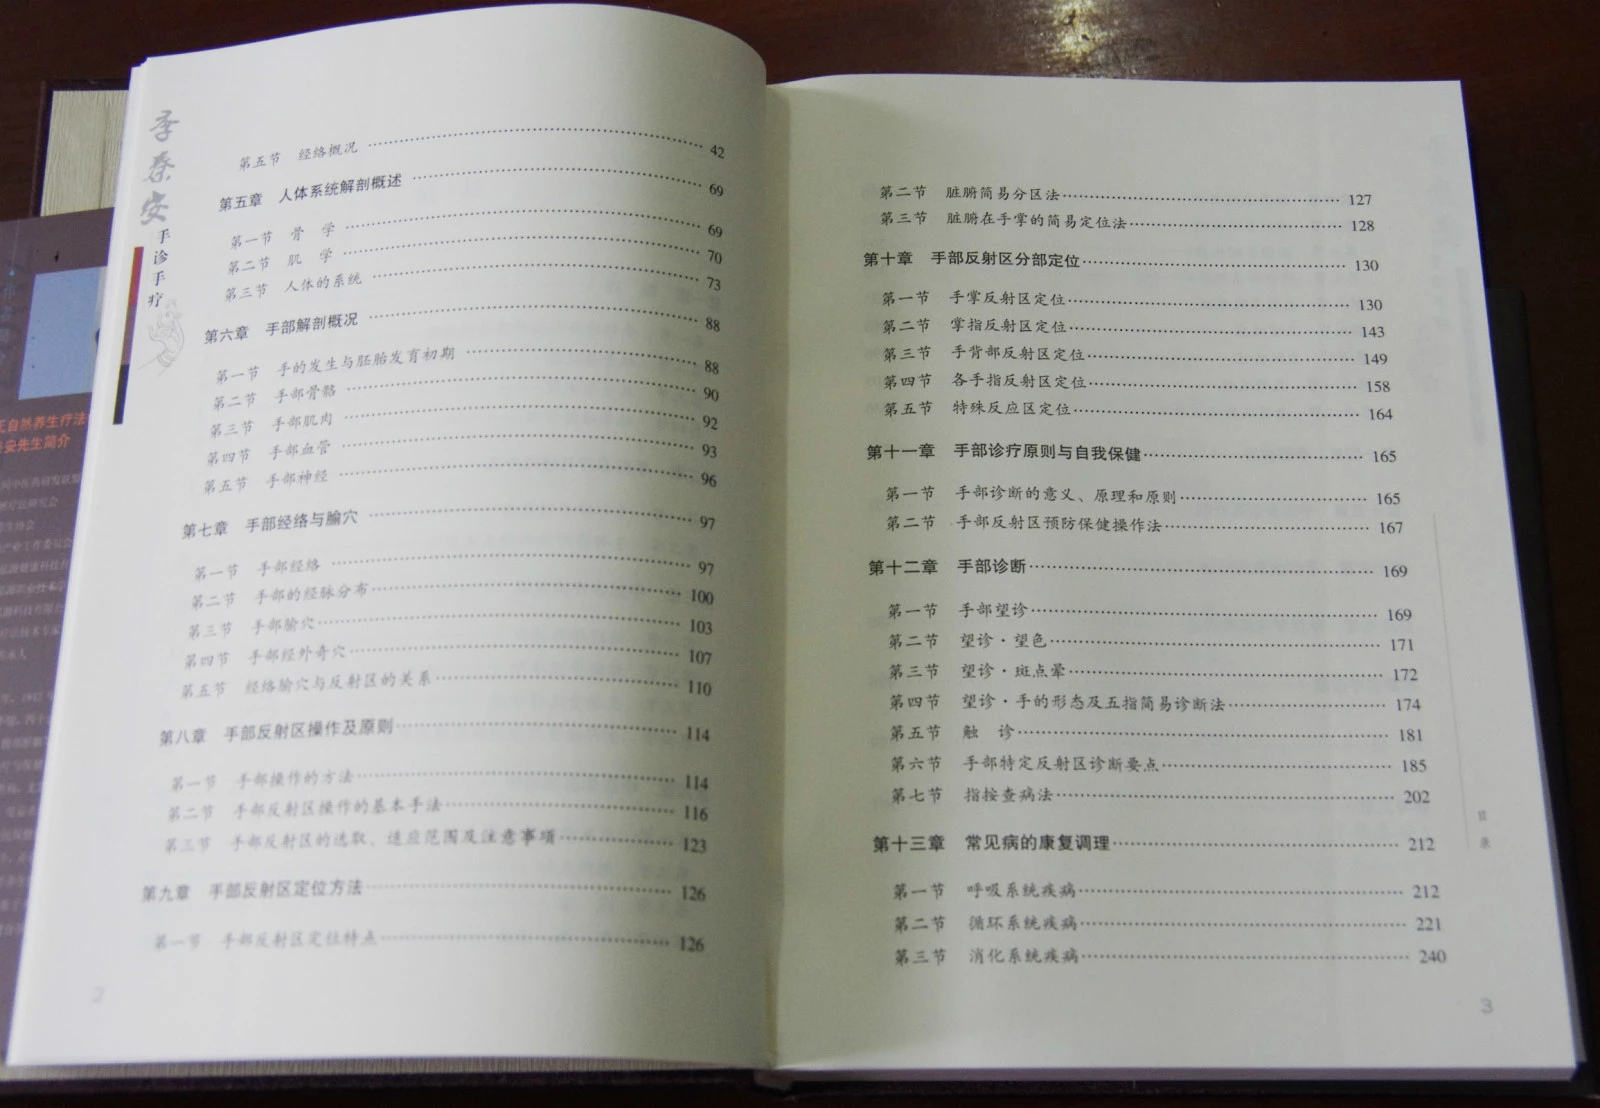 季秦安
手诊手疗
第五节 经络概况 42
第五章 人体系统解剖概述 69
第一节 骨 学 69
第二节 肌 学 70
第三节 人体的系统 73
第六章 手部解剖概况 88
第一节 手的发生与胚胎发育初期 88
第二节 手部骨骼 90
第三节 手部肌肉 92
第四节 手部血管 93
第五节 手部神经 96
第七章 手部经络与腧穴 97
第一节 手部经络 97
第二节 手部的经脉分布 100
第三节 手部腧穴 103
第四节 手部经外奇穴 107
第五节 经络腧穴与反射区的关系 110
第八章 手部反射区操作及原则 114
第一节 手部操作的方法 114
第二节 手部反射区操作的基本手法 116
第三节 手部反射区的选取、适应范围及注意事项 123
第九章 手部反射区定位方法 126
第一节 手部反射区定位特点 126
2
第二节 脏腑简易分区法 127
第三节 脏腑在手掌的简易定位法 128
第十章 手部反射区分部定位 130
第一节 手掌反射区定位 130
第二节 掌指反射区定位 143
第三节 手背部反射区定位 149
第四节 各手指反射区定位 158
第五节 特殊反应区定位 164
第十一章 手部诊疗原则与自我保健 165
第一节 手部诊断的意义、原理和原则 165
第二节 手部反射区预防保健操作法 167
第十二章 手部诊断 169
第一节 手部望诊 169
第二节 望诊·望色 171
第三节 望诊·斑点晕 172
第四节 望诊·手的形态及五指简易诊断法 174
第五节 触 诊 181
第六节 手部特定反射区诊断要点 185
第七节 指按查病法 202
第十三章 常见病的康复调理 212
第一节 呼吸系统疾病 212
第二节 循环系统疾病 221
第三节 消化系统疾病 240
目录
3
氏自然养生疗法
安先生简介